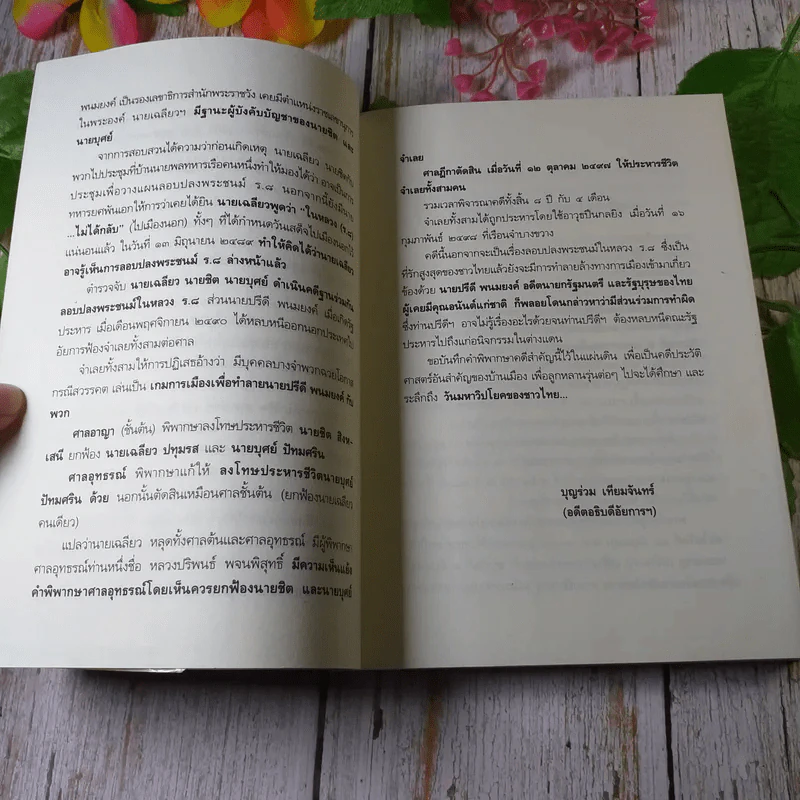 พนมยงค์ เป็นรองเลขาธิการสำนักพระราชวัง เคยมีตำแหน่งราชเลขานุการ
ในพระองค์ นายเฉลียวฯ มีฐานะผู้บังคับบัญชาของนายชิต และ
นายบุศย์
จากการสอบสวนได้ความว่าก่อนเกิดเหตุ นายเฉลียว นายชิตกับ
พวกไปประชุมที่บ้านนายพลทหารเรือคนหนึ่งทำให้มองได้ว่า อาจเป็นการ
ประชุมเพื่อวางแผนลอบปลงพระชนม์ ร.๘ นอกจากนี้ยังมีนาย
ทหารยศพันเอกให้การว่าเคยได้ยิน นายเฉลียวพูดว่า "ในหลวง (ร.๘)
...ไม่ได้กลับ" (ไปเมืองนอก) ทั้งๆ ที่ได้กำหนดวันเสด็จไปเมืองนอกไว้
แน่นอนแล้ว ในวันที่ ๑๓ มิถุนายน ๒๔๘๙ ทำให้คิดได้ว่านายเฉลียว
อาจรู้เห็นการลอบปลงพระชนม์ ร.๘ ล่วงหน้าแล้ว
ตำรวจจับ นายเฉลียว นายชิต นายบุศย์ ดำเนินคดีฐานร่วมกัน
ลอบปลงพระชนม์ในหลวง ร.๘ ส่วนนายปรีดี พนมยงค์ เมื่อเกิดรัฐ
ประหาร เมื่อเดือนพฤศจิกายน ๒๔๙๐ ได้หลบหนีออกนอกประเทศไป
อัยการฟ้องจำเลยทั้งสามต่อศาล
จำเลยทั้งสามให้การปฏิเสธอ้างว่า มีบุคคลบางจำพวกฉวยโอกาส
กรณีสวรรคต เล่นเป็น เกมการเมืองเพื่อทำลายนายปรีดี พนมยงค์ กับ
พวก
ศาลอาญา (ชั้นต้น) พิพากษาลงโทษประหารชีวิต นายชิต สิงห-
เสนี ยกฟ้อง นายเฉลียว ปทุมรส และ นายบุศย์ ปัทมศริน
ศาลอุทธรณ์ พิพากษาแก้ให้ ลงโทษประหารชีวิตนายบุศย์
ปัทมศริน ด้วย นอกนั้นตัดสินเหมือนศาลชั้นต้น (ยกฟ้องนายเฉลียว
คนเดียว)
แปลว่านายเฉลียว หลุดทั้งศาลต้นและศาลอุทธรณ์ มีผู้พิพากษา
ศาลอุทธรณ์ท่านหนึ่งชื่อ หลวงปริพนธ์ พจนพิสุทธิ์ มีความเห็นแย้ง
คำพิพากษาศาลอุทธรณ์โดยเห็นควรยกฟ้องนายชิต และนายบุศย์
จำเลย
ศาลฎีกาตัดสิน เมื่อวันที่ ๑๒ ตุลาคม ๒๔๙๗ ให้ประหารชีวิต
จำเลยทั้งสามคน
รวมเวลาพิจารณคดีทั้งสิ้น ๘ ปี กับ ๔ เดือน
จำเลยทั้งสามได้ถูกประหารโดยใช้อาวุธปืนกลยิง เมื่อวันที่ ๑๖
กุมภาพันธ์ ๒๔๙๘ ที่เรือนจำบางขวาง
คดีนี้นอกจากจะเป็นเรื่องลอบปลงพระชนม์ในหลวง ร.๘ ซึ่งเป็น
ที่รักสูงสุดของชาวไทยแล้วยังจะมีการทำลายล้างทางการเมืองเข้ามาเกี่ยว
ข้องด้วย นายปรีดี พนมยงค์ อดีตนายกรัฐมนตรี และรัฐบุรุษของไทย
ผู้เคยมีคุณอนันต์แก่ชาติ ก็พลอยโดนกล่าวหาว่ามีส่วนร่วมการทำผิด
ซึ่งท่านปรีดีฯ อาจไม่รู้เรื่องอะไรด้วยจนท่านปรีดีฯ ต้องหลบหนีคณะรัฐ
ประหารไปถึงแก่อนิจกรรมในต่างแดน
ขอบันทึกคำพิพากษาคดีสำคัญนี้ไว้ในแผ่นดิน เพื่อเป็นคดีประวัติ
ศาสตร์อันสำคัญของบ้านเมือง เพื่อลูกหลานรุ่นต่อๆ ไปจะได้ศึกษา และ
ระลึกถึง วันมหาวิปโยคของชาวไทย...
บุญร่วม เทียมจันทร์
(อดีตอธิบดีอัยการฯ)